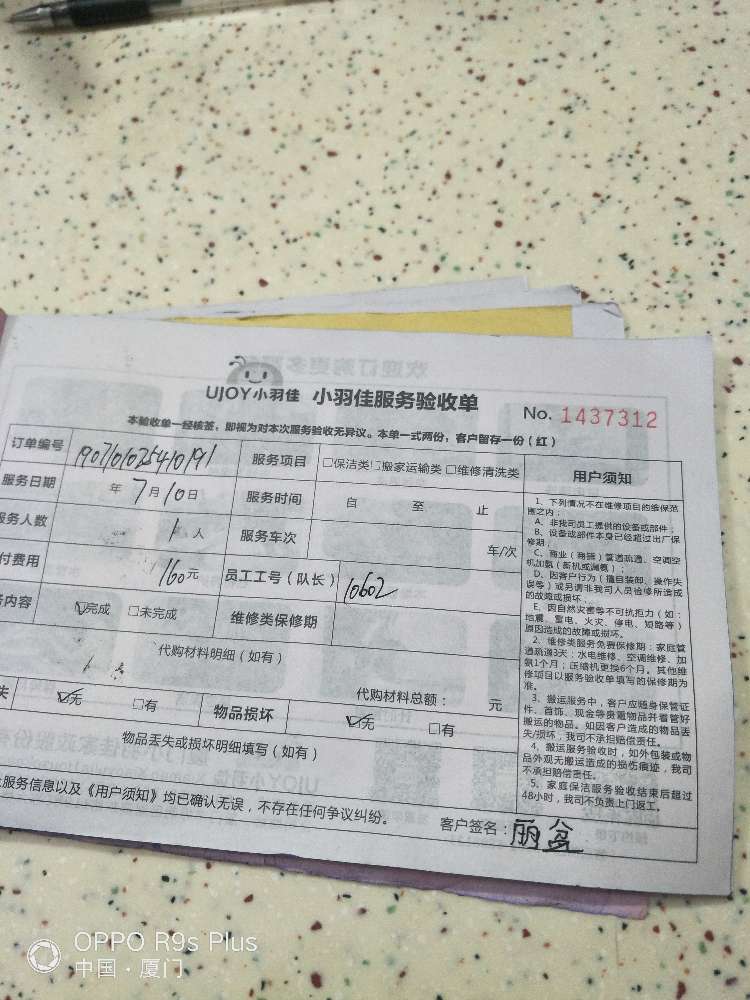 UJOY小羽佳 小羽佳服务验收单 No. 1437312
本验收单一经核签，即视为对本次服务验收无异议。本单一式两份，客户留存一份（红）
订单编号 服务项目 □保洁类 □搬家运输类 □维修清洗类 用户须知
服务日期 年 7 月 10 日 服务时间 自 至 止
服务人数 1 人 服务车次 车/次
付费用 160 元 员工工号（队长） 10602
内容 ☑完成 □未完成 维修类保修期
代购材料明细（如有）
代购材料总额： 元
失 ☑无 □有 物品损坏 ☑无 □有
物品丢失或损坏明细填写（如有）
服务信息以及《用户须知》均已确认无误，不存在任何争议纠纷。 客户签名：丽
1、下列情况不在维修项目的维保范
围之内：
A、非我司员工提供的设备或部件；
B、设备或部件本身已经超过出厂保
修期；
C、商业（商铺）管道疏通、空调空
机加氨（新机或漏氨）；
D、因客户行为（擅自装卸、操作失
误等）或另请非我司人员检修所造成
的故障或损坏。
E、因自然灾害等不可抗拒力（如：
地震、雷电、火灾、停电、短路等）
原因造成的故障或损坏。
2、维修类服务免费保修期：家庭管
道疏通3天；水电维修、空调维修、加
氨1个月；压缩机更换6个月。其他维
修项目以服务验收单填写的保修期为
准。
3、搬运服务中，客户应随身保管证
件、首饰、现金等贵重物品并看管好
搬运的物品。如因客户造成的物品丢
失/损坏，我司不承担赔偿责任。
4、搬运服务验收时，如外包装或物
品外观无搬运造成的损伤痕迹，我司
不承担赔偿责任。
5、家庭保洁服务验收结束后超过
48小时，我司不负责上门返工。
OPPO R9s Plus
中国·厦门